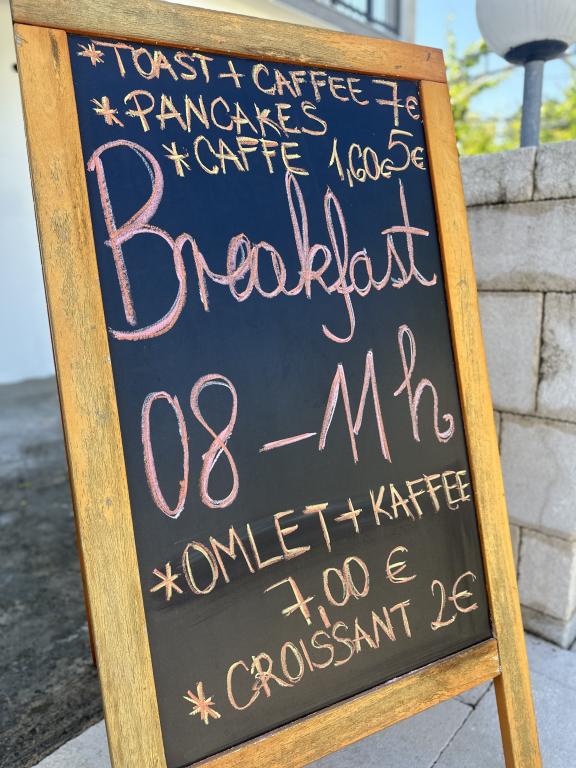 *TOAST + CAFFEE 7€
*PANCAKES 5€
*CAFFE 1,60€
Breakfast
08 - 11 h
*OMLET + KAFFEE
7,00 €
*CROISSANT 2€